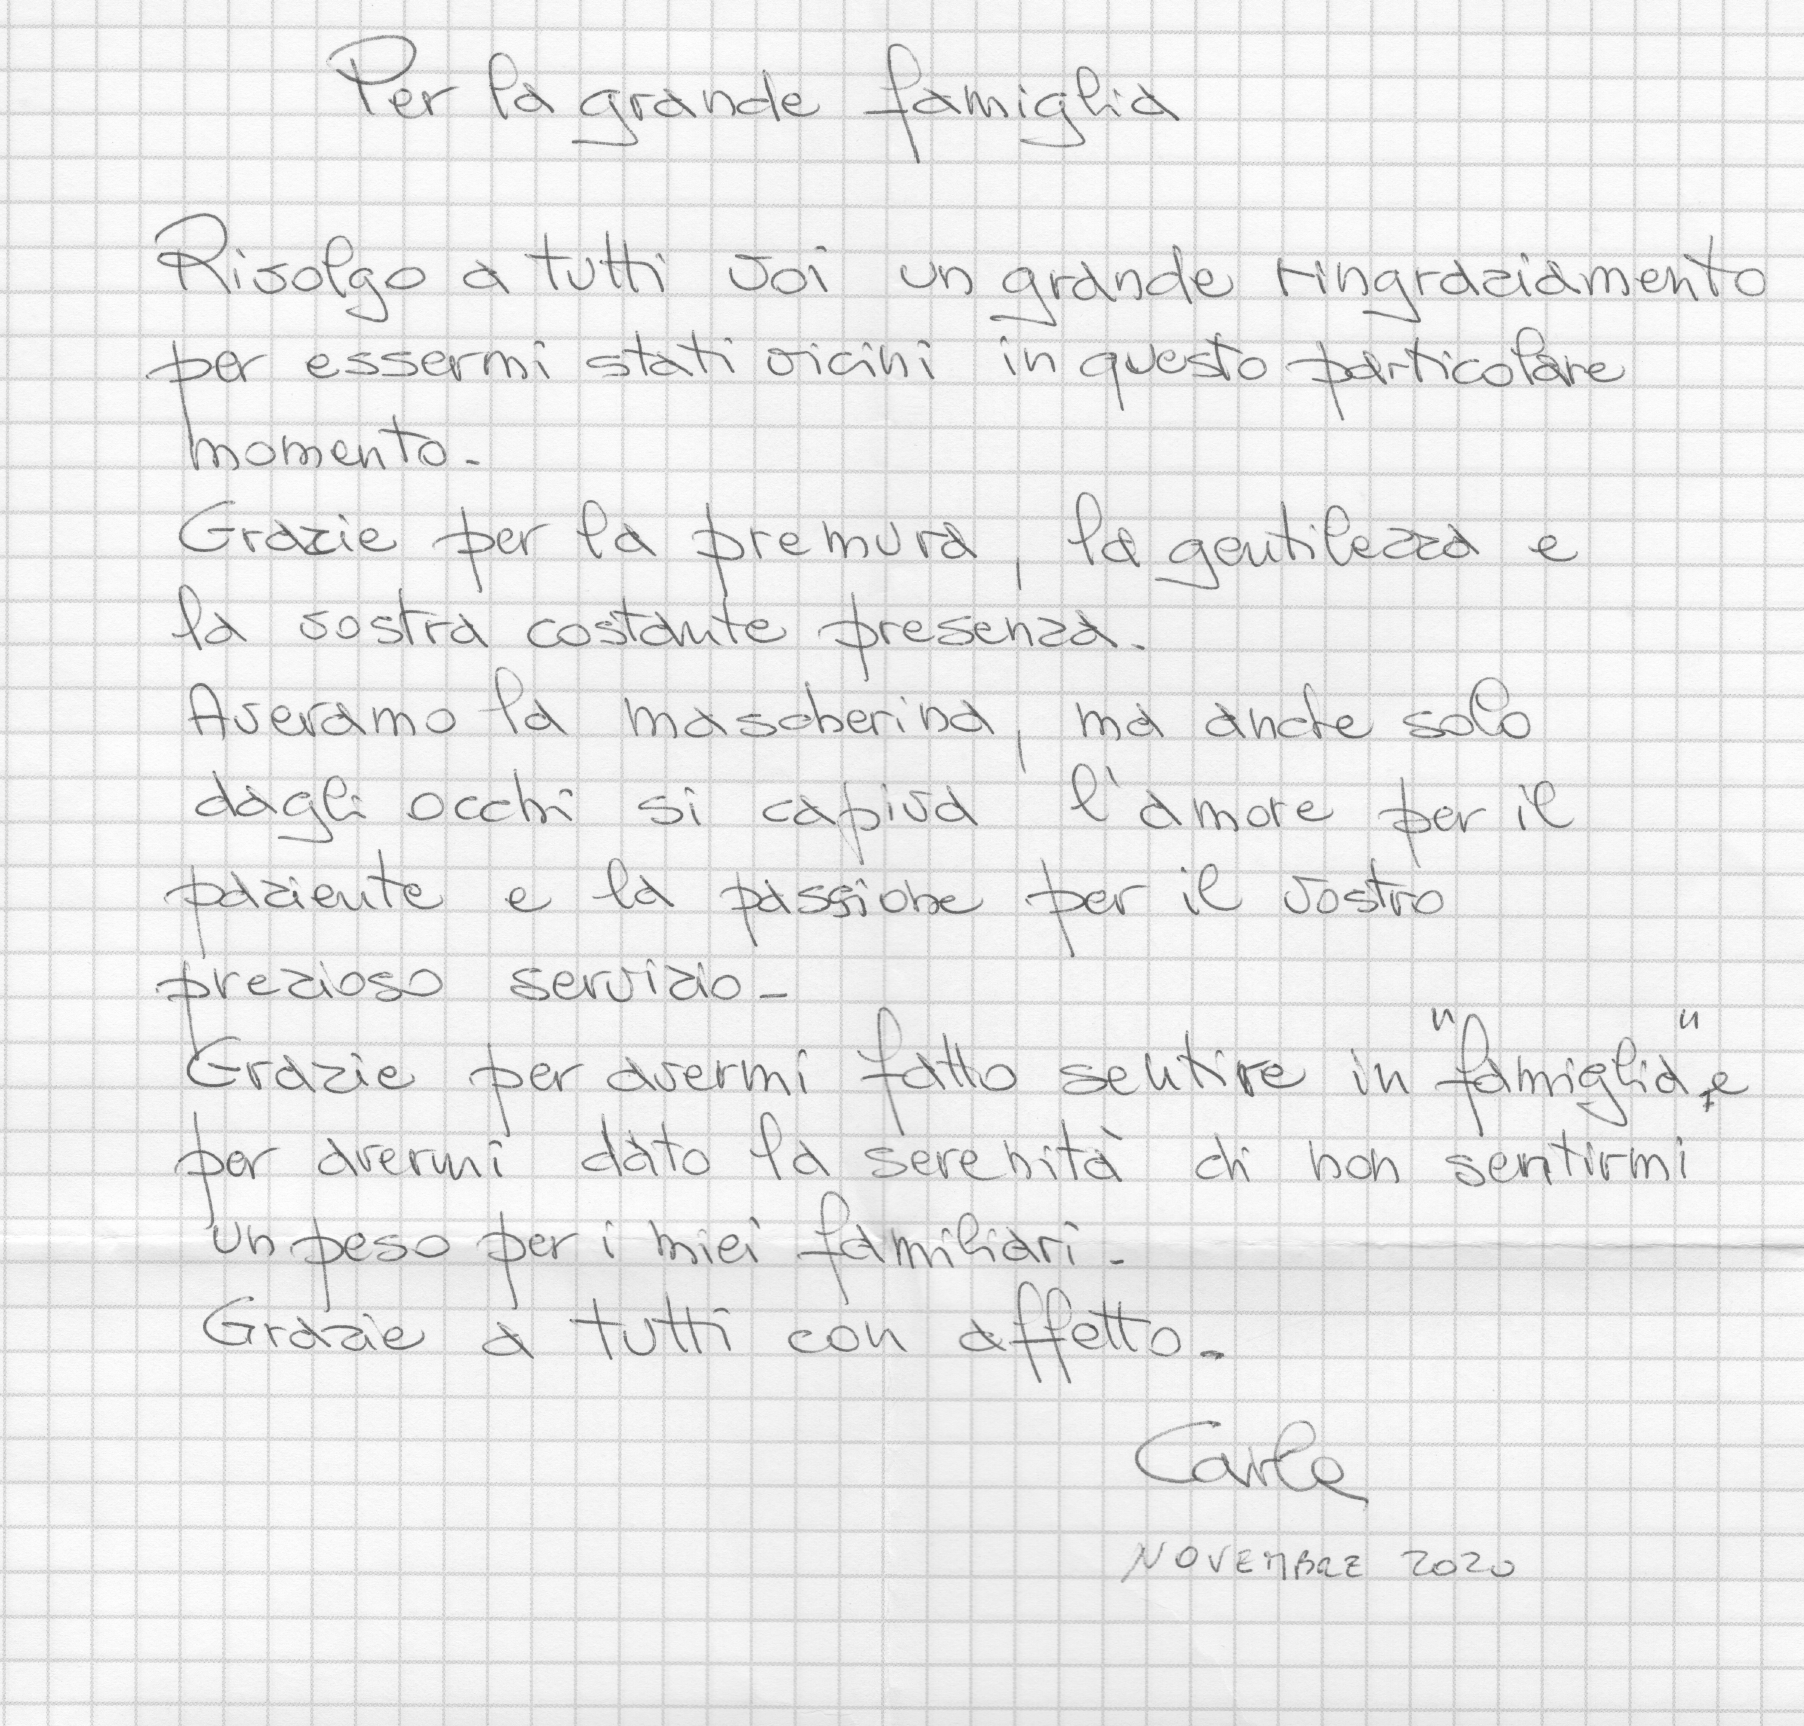 Per la grande famiglia
Risolgo a tutti voi un grande ringraziamento
per essermi stati vicini in questo particolare
momento.
Grazie per la premura, la gentilezza e
la vostra costante presenza.
Averamo la mascherina, ma anche solo
dagli occhi si capiva l'amore per il
paziente e la passione per il vostro
prezioso servizio.
Grazie per avermi fatto sentire in "famiglia", e
per avermi dato la serenità di non sentirmi
un peso per i miei familiari.
Grazie a tutti con affetto.
Carla
NOVEMBRE 2020